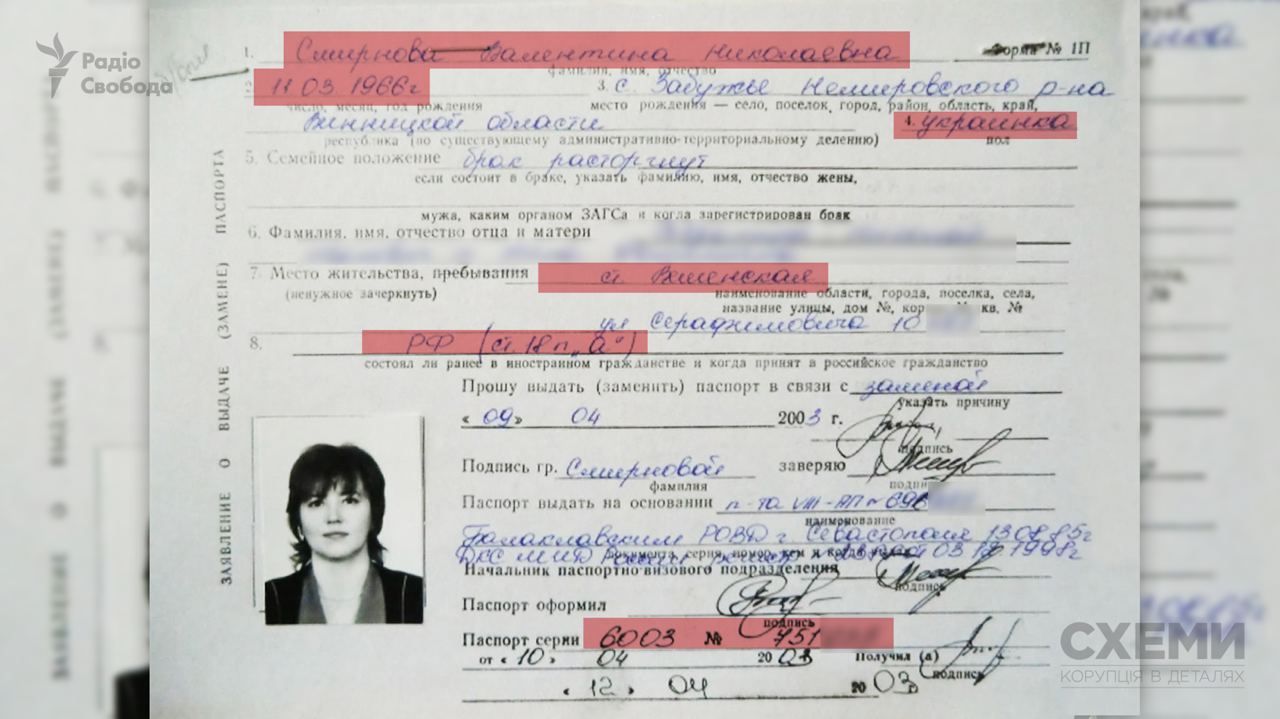 Радіо
Свобода
1. Смирнова Валентина Николаевна Форма № 1П
фамилия, имя, отчество
11.03.1966г 3. с. Забужье Немировского р-на
число, месяц, год рождения место рождения — село, поселок, город, район, область, край,
Винницкой области 4. украинка
республика (по существующему административно-территориальному делению) пол
5. Семейное положение брак расторгнут
если состоит в браке, указать фамилию, имя, отчество жены,
мужа, каким органом ЗАГСа и когда зарегистрирован брак
6. Фамилия, имя, отчество отца и матери
7. Место жительства, пребывания ст. Вешенская
(ненужное зачеркнуть) наименование области, города, поселка, села,
название улицы, дом №, кор кв. №
ул Серафимовича 10
8. РФ (ст. 18 п. „а")
состоял ли ранее в иностранном гражданстве и когда принят в российское гражданство
Прошу выдать (заменить) паспорт в связи с заменой
указать причину
« 09 » 04 2003 г.
подпись
Подпись гр. Смирновой заверяю
фамилия подпи
Паспорт выдать на основании п-та VIII-АП № 696
наименование
Балаклавским РОВД г Севастополя 13.08.85г
документа, серия, номер, кем и когда
ДКС МИД России 1998г
Начальник паспортно-визового подразделения
подпись
Паспорт оформил
подпись
Паспорт серии 6003 № 751
от « 10 » 04 2003 Получил (а)
подпись
« 12 » 04 2003
ЗАЯВЛЕНИЕ О ВЫДАЧЕ (ЗАМЕНЕ) ПАСПОРТА
СХЕМИ
КОРУПЦІЯ В ДЕТАЛЯХ